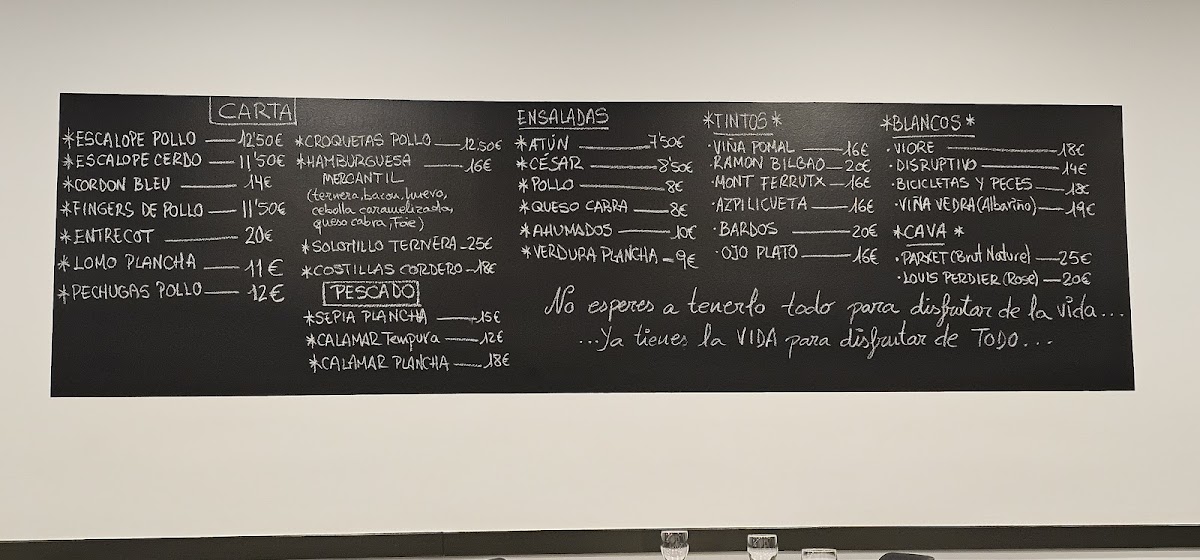 CARTA
*ESCALOPE POLLO — 12'50€
*ESCALOPE CERDO — 11'50€
*CORDON BLEU — 14€
*FINGERS DE POLLO — 11'50€
*ENTRECOT — 20€
*LOMO PLANCHA — 11€
*PECHUGAS POLLO — 12€
*CROQUETAS POLLO — 12'50€
*HAMBURGUESA — 16€
MERCANTIL
(ternera, bacon, huevo,
cebolla caramelizada,
queso cabra, Foie)
*SOLOMILLO TERNERA — 25€
*COSTILLAS CORDERO — 18€
PESCADO
*SEPIA PLANCHA — 15€
*CALAMAR Tempura — 12€
*CALAMAR PLANCHA — 18€
ENSALADAS
*ATÚN — 7'50€
*CÉSAR — 8'50€
*POLLO — 8€
*QUESO CABRA — 8€
*AHUMADOS — 10€
*VERDURA PLANCHA — 9€
*TINTOS*
·VIÑA POMAL — 16€
·RAMON BILBAO — 20€
·MONT FERRUTX — 16€
·AZPILICUETA — 16€
·BARDOS — 20€
·OJO PLATO — 16€
*BLANCOS*
·VIORE — 18€
·DISRUPTIVO — 14€
·BICICLETAS Y PECES — 18€
·VIÑA VEDRA (Albariño) — 19€
*CAVA*
·PARXET (Brut Nature) — 25€
·LOUIS PERDIER (Rosé) — 20€
No esperes a tenerlo todo para disfrutar de la vida...
...Ya tienes la VIDA para disfrutar de TODO...